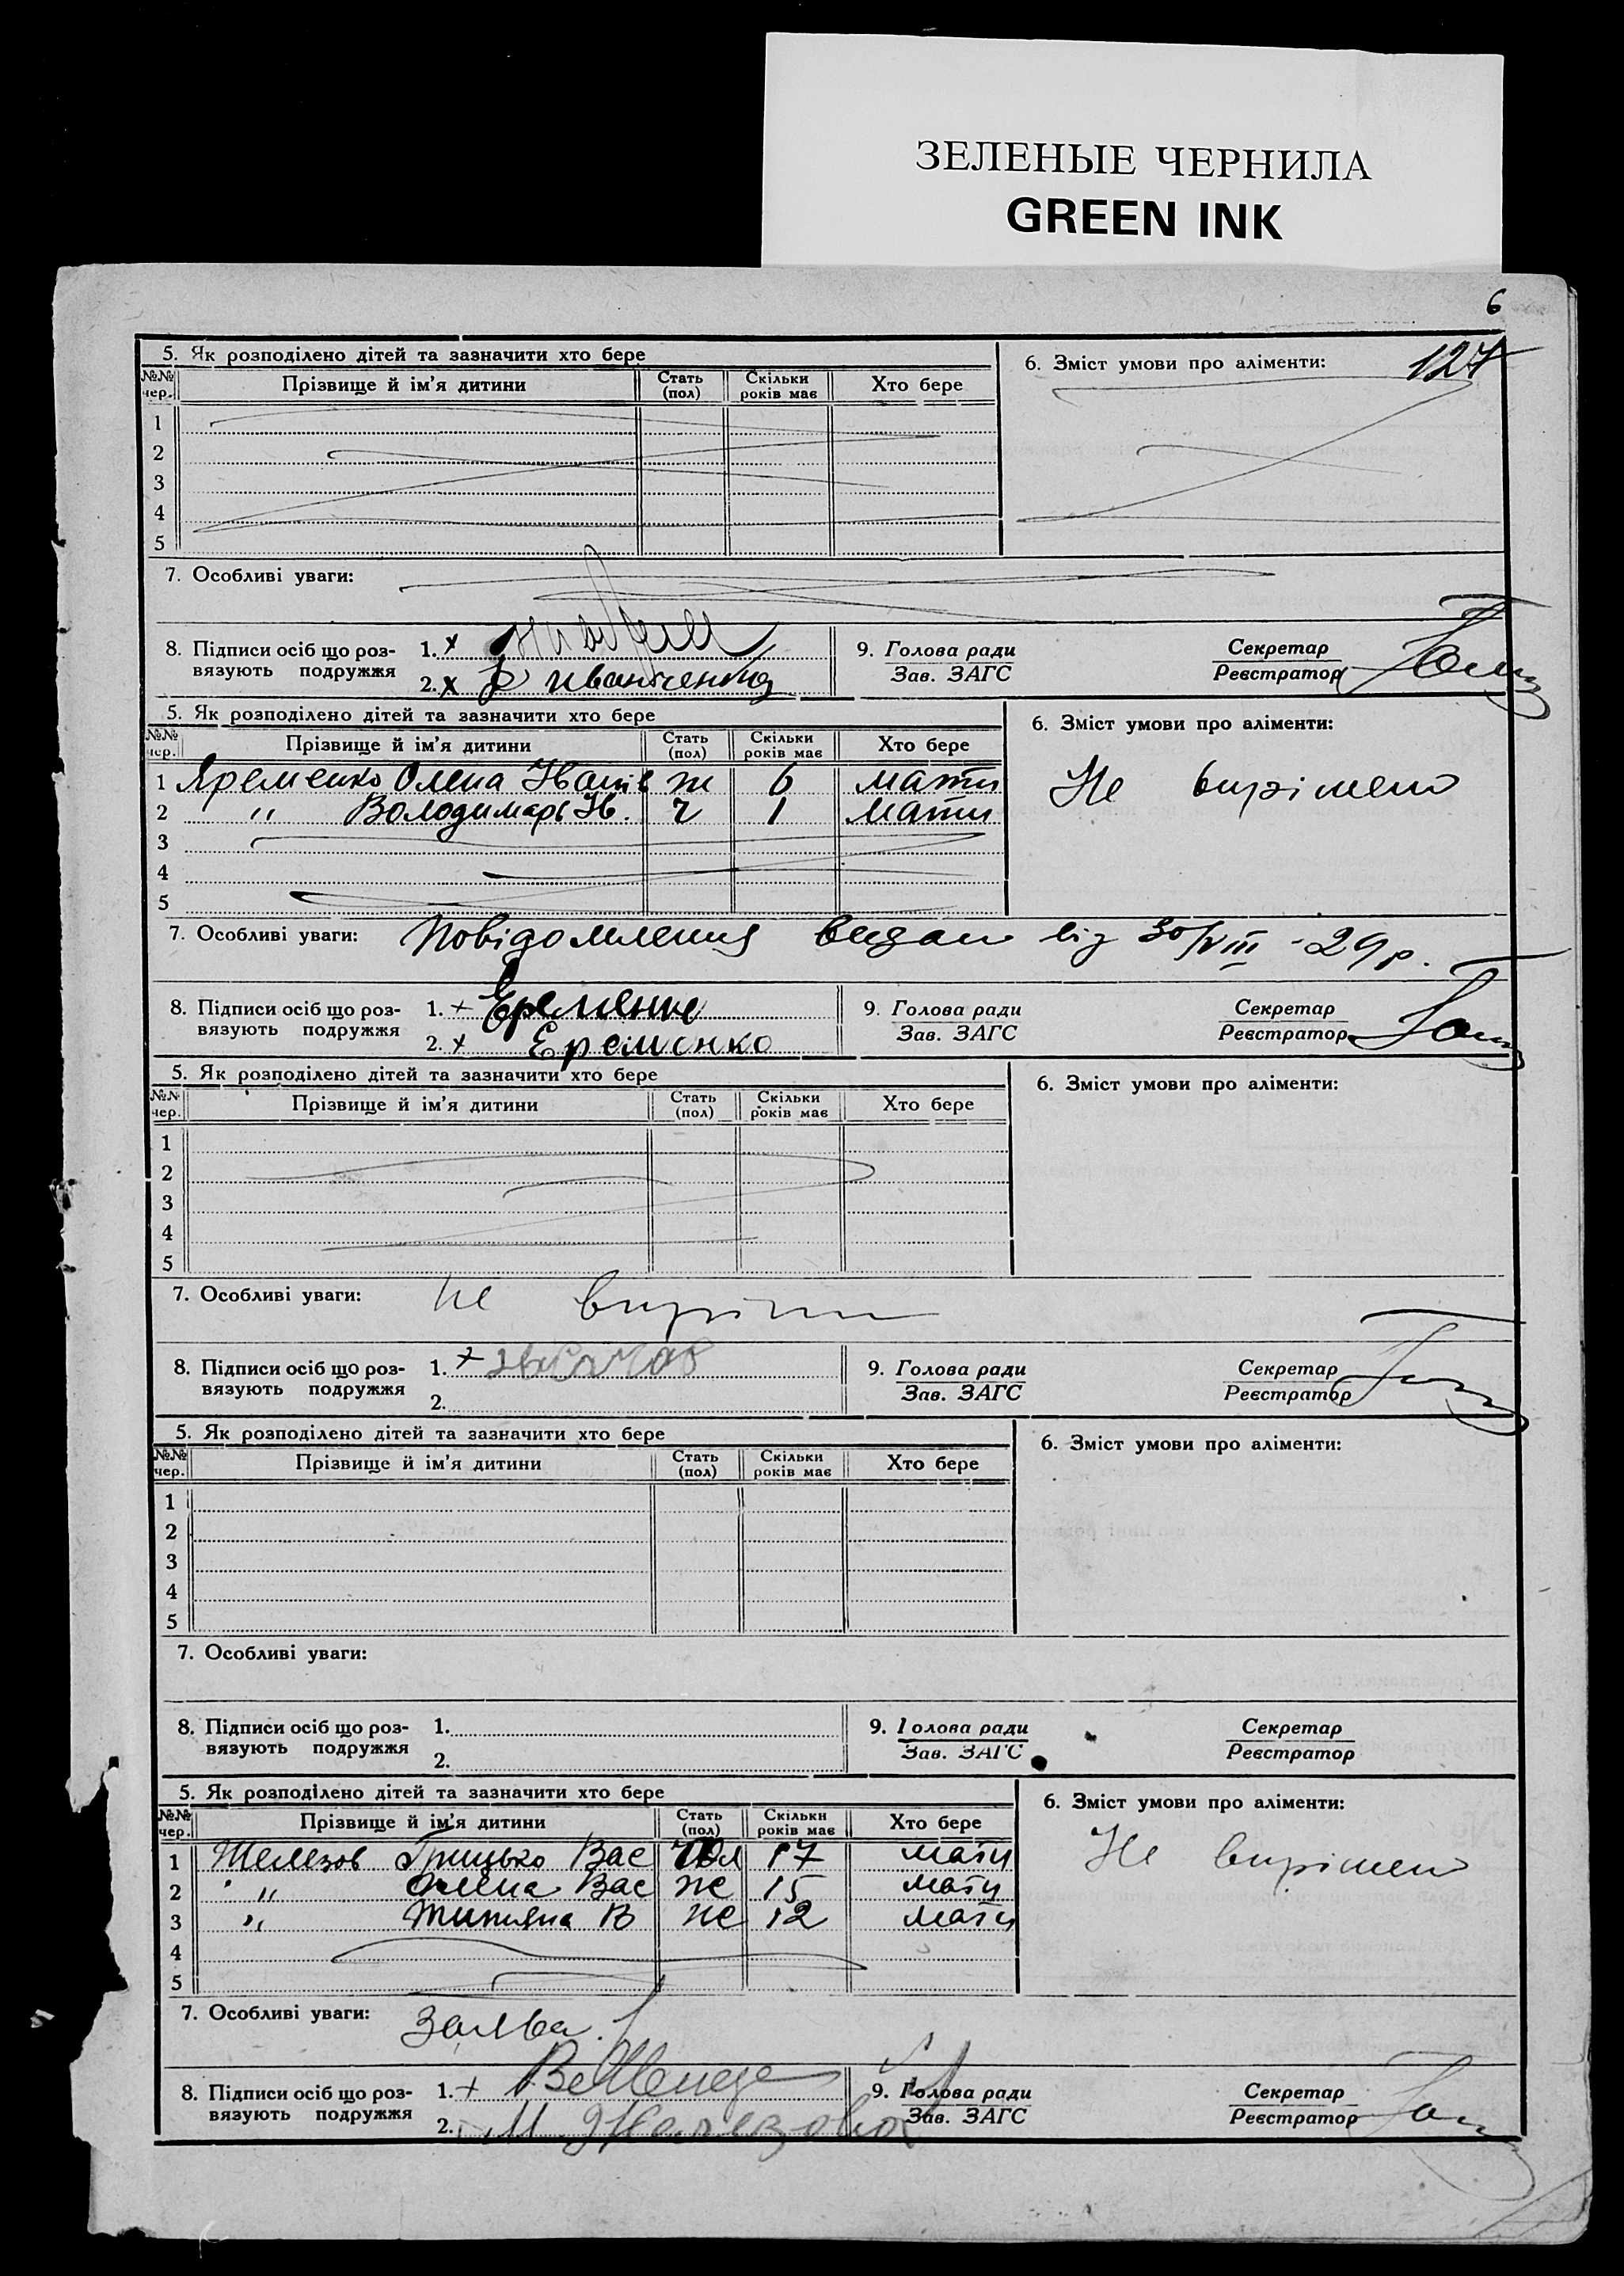 ЗЕЛЕНЫЕ ЧЕРНИЛА
GREEN INK
6
127
5. Як розподілено дітей та зазначити хто бере
6. Зміст умови про аліменти:
№№ чер. Прізвище й ім'я дитини Стать (пол) Скільки років має Хто бере
1
2
3
4
5
7. Особливі уваги:
8. Підписи осіб що роз-
вязують подружжя
1. х
2. х
9. Голова ради
Зав. ЗАГС
Секретар
Реєстратор
5. Як розподілено дітей та зазначити хто бере
6. Зміст умови про аліменти:
№№ чер. Прізвище й ім'я дитини Стать (пол) Скільки років має Хто бере
1 Яременко Олена Іванів ж 6 мати
2 " Володимарь Ів. ч 1 мати
3
4
5
Не вирішено
7. Особливі уваги: Повідомлення видан від 30/VIII - 29 р.
8. Підписи осіб що роз-
вязують подружжя
1. +
2. х Еременко
9. Голова ради
Зав. ЗАГС
Секретар
Реєстратор
5. Як розподілено дітей та зазначити хто бере
6. Зміст умови про аліменти:
№№ чер. Прізвище й ім'я дитини Стать (пол) Скільки років має Хто бере
1
2
3
4
5
7. Особливі уваги: Не
8. Підписи осіб що роз-
вязують подружжя
1. +
2.
9. Голова ради
Зав. ЗАГС
Секретар
Реєстратор
5. Як розподілено дітей та зазначити хто бере
6. Зміст умови про аліменти:
№№ чер. Прізвище й ім'я дитини Стать (пол) Скільки років має Хто бере
1
2
3
4
5
7. Особливі уваги:
8. Підписи осіб що роз-
вязують подружжя
1.
2.
9. Голова ради
Зав. ЗАГС
Секретар
Реєстратор
5. Як розподілено дітей та зазначити хто бере
6. Зміст умови про аліменти:
№№ чер. Прізвище й ім'я дитини Стать (пол) Скільки років має Хто бере
1 Железов Грицько Вас 17 мати
2 " Олена Вас ж 15 мати
3 " Титяна В ж 12 мати
4
5
Не вирішено
7. Особливі уваги:
8. Підписи осіб що роз-
вязують подружжя
1. +
2. М Железова
9. Голова ради
Зав. ЗАГС
Секретар
Реєстратор